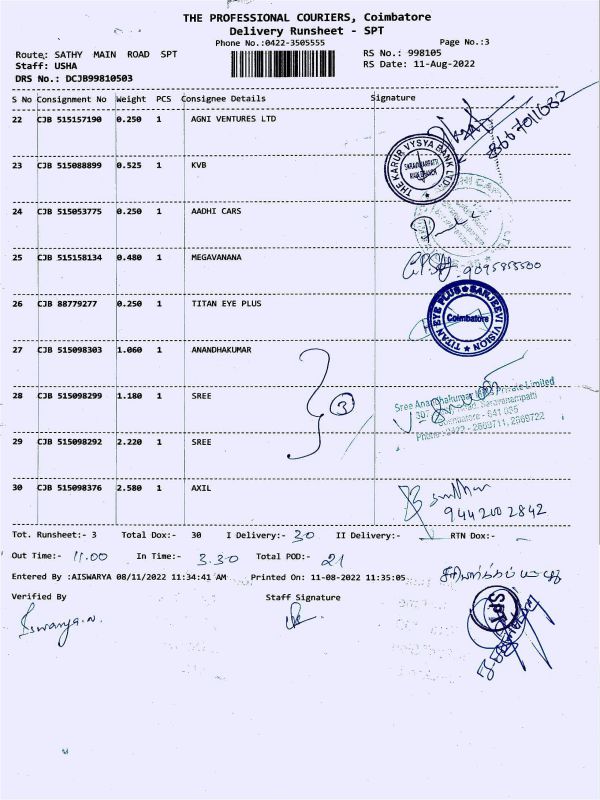 THE PROFESSIONAL COURIERS, Coimbatore
Delivery Runsheet - SPT
Phone No.:0422-3505555
Page No.:3
Route: SATHY MAIN ROAD SPT
RS No.: 998105
Staff: USHA
RS Date: 11-Aug-2022
DRS No.: DCJB99810503
S No Consignment No Weight PCS Consignee Details Signature
22 CJB 515157190 0.250 1 AGNI VENTURES LTD
23 CJB 515088899 0.525 1 KVB
THE KARUR VYSYA BANK LTD.
SARAVANAMPATTI
24 CJB 515053775 0.250 1 AADHI CARS
25 CJB 515158134 0.480 1 MEGAVANANA
26 CJB 88779277 0.250 1 TITAN EYE PLUS
TITAN EYE PLUS ★ SANJEEVI VISION ★
Coimbatore
27 CJB 515098303 1.060 1 ANANDHAKUMAR
28 CJB 515098299 1.180 1 SREE
3
Sree Anandhakumar Mills Private Limited
Saravanampatti
Coimbatore - 641 035
Phone : 0422 - 2669711, 2669722
29 CJB 515098292 2.220 1 SREE
30 CJB 515098376 2.580 1 AXIL
9442002842
Tot. Runsheet:- 3 Total Dox:- 30 I Delivery:- 30 II Delivery:- RTN Dox:-
Out Time:- 11.00 In Time:- 3.30 Total POD:- 21
Entered By :AISWARYA 08/11/2022 11:34:41 AM Printed On: 11-08-2022 11:35:05
Verified By Staff Signature
SPT